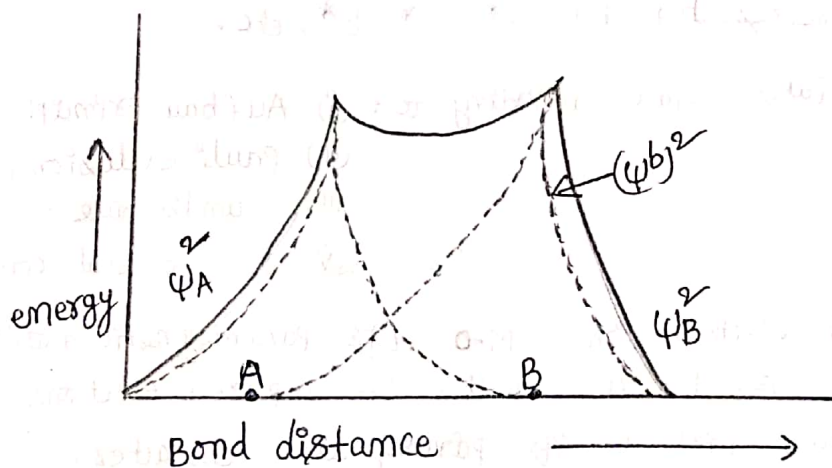 (ψᵇ)²
ψ²A
energy
ψ²B
A
B
Bond distance